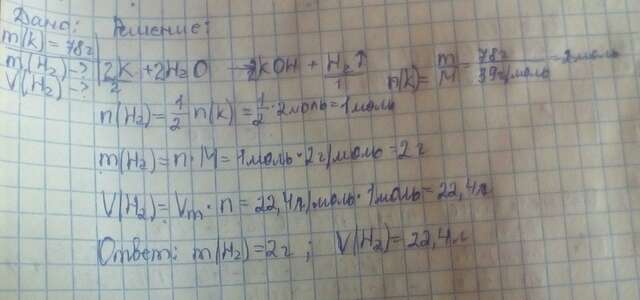 Дано: Решение:
m(K) = 78г
m(H₂) -? 2K + 2H₂O → 2KOH + H₂↑ n(K) = m/M = 78г/39г/моль = 2моль
V(H₂) -? 2 1
n(H₂) = 1/2 n(K) = 1/2 · 2моль = 1моль
m(H₂) = n · M = 1моль · 2г/моль = 2г
V(H₂) = Vm · n = 22,4л/моль · 1моль = 22,4л
Ответ: m(H₂) = 2г ; V(H₂) = 22,4л